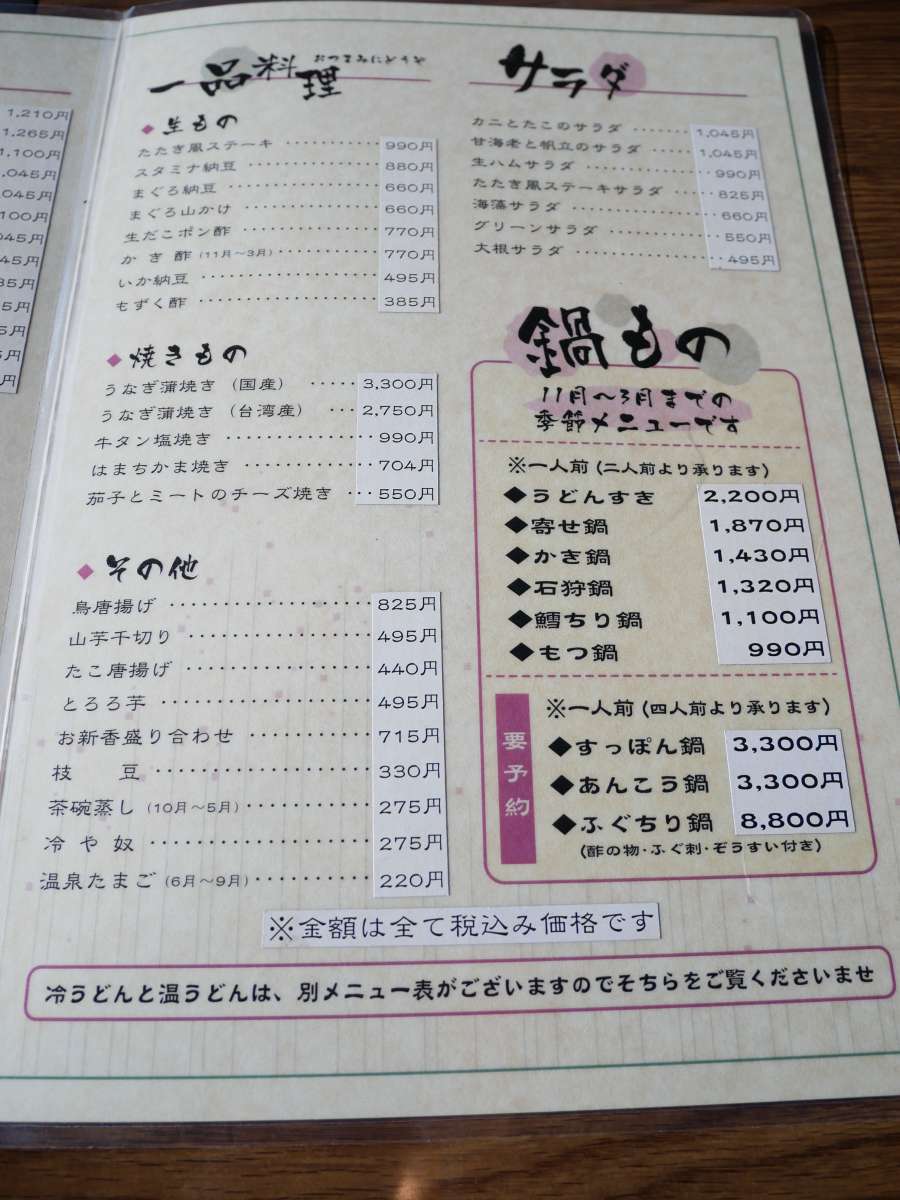 1,210円
1,265円
1,100円
,045円
,045円
100円
045円
45円
85円
5円
5円
5円
円
一品料理 おつまみにどうぞ
◆生もの
たたき風ステーキ ・・・・・・ 990円
スタミナ納豆 ・・・・・・・・ 880円
まぐろ納豆 ・・・・・・・・・ 660円
まぐろ山かけ ・・・・・・・・ 660円
生だこポン酢 ・・・・・・・・ 770円
かき酢(11月〜3月)・・・・・・ 770円
いか納豆 ・・・・・・・・・・ 495円
もずく酢 ・・・・・・・・・・ 385円
◆焼きもの
うなぎ蒲焼き(国産) ・・・・・ 3,300円
うなぎ蒲焼き(台湾産) ・・・ 2,750円
牛タン塩焼き ・・・・・・・・・ 990円
はまちかま焼き ・・・・・・・・ 704円
茄子とミートのチーズ焼き ・・・ 550円
◆その他
鳥唐揚げ ・・・・・・・・・・ 825円
山芋千切り ・・・・・・・・・ 495円
たこ唐揚げ ・・・・・・・・・ 440円
とろろ芋 ・・・・・・・・・・ 495円
お新香盛り合わせ ・・・・・・ 715円
枝 豆 ・・・・・・・・・・・ 330円
茶碗蒸し(10月〜5月)・・・・・・ 275円
冷や奴 ・・・・・・・・・・・ 275円
温泉たまご(6月〜9月)・・・・・・ 220円
サラダ
カニとたこのサラダ ・・・・・・ 1,045円
甘海老と帆立のサラダ ・・・・ 1,045円
生ハムサラダ ・・・・・・・・ 990円
たたき風ステーキサラダ ・・・・ 825円
海藻サラダ ・・・・・・・・・ 660円
グリーンサラダ ・・・・・・・ 550円
大根サラダ ・・・・・・・・・ 495円
鍋もの
11月〜3月までの
季節メニューです
※一人前(二人前より承ります)
◆うどんすき 2,200円
◆寄せ鍋 1,870円
◆かき鍋 1,430円
◆石狩鍋 1,320円
◆鱈ちり鍋 1,100円
◆もつ鍋 990円
要予約
※一人前(四人前より承ります)
◆すっぽん鍋 3,300円
◆あんこう鍋 3,300円
◆ふぐちり鍋 8,800円
(酢の物・ふぐ刺・ぞうすい付き)
※金額は全て税込み価格です
冷うどんと温うどんは、別メニュー表がございますのでそちらをご覧くださいませ